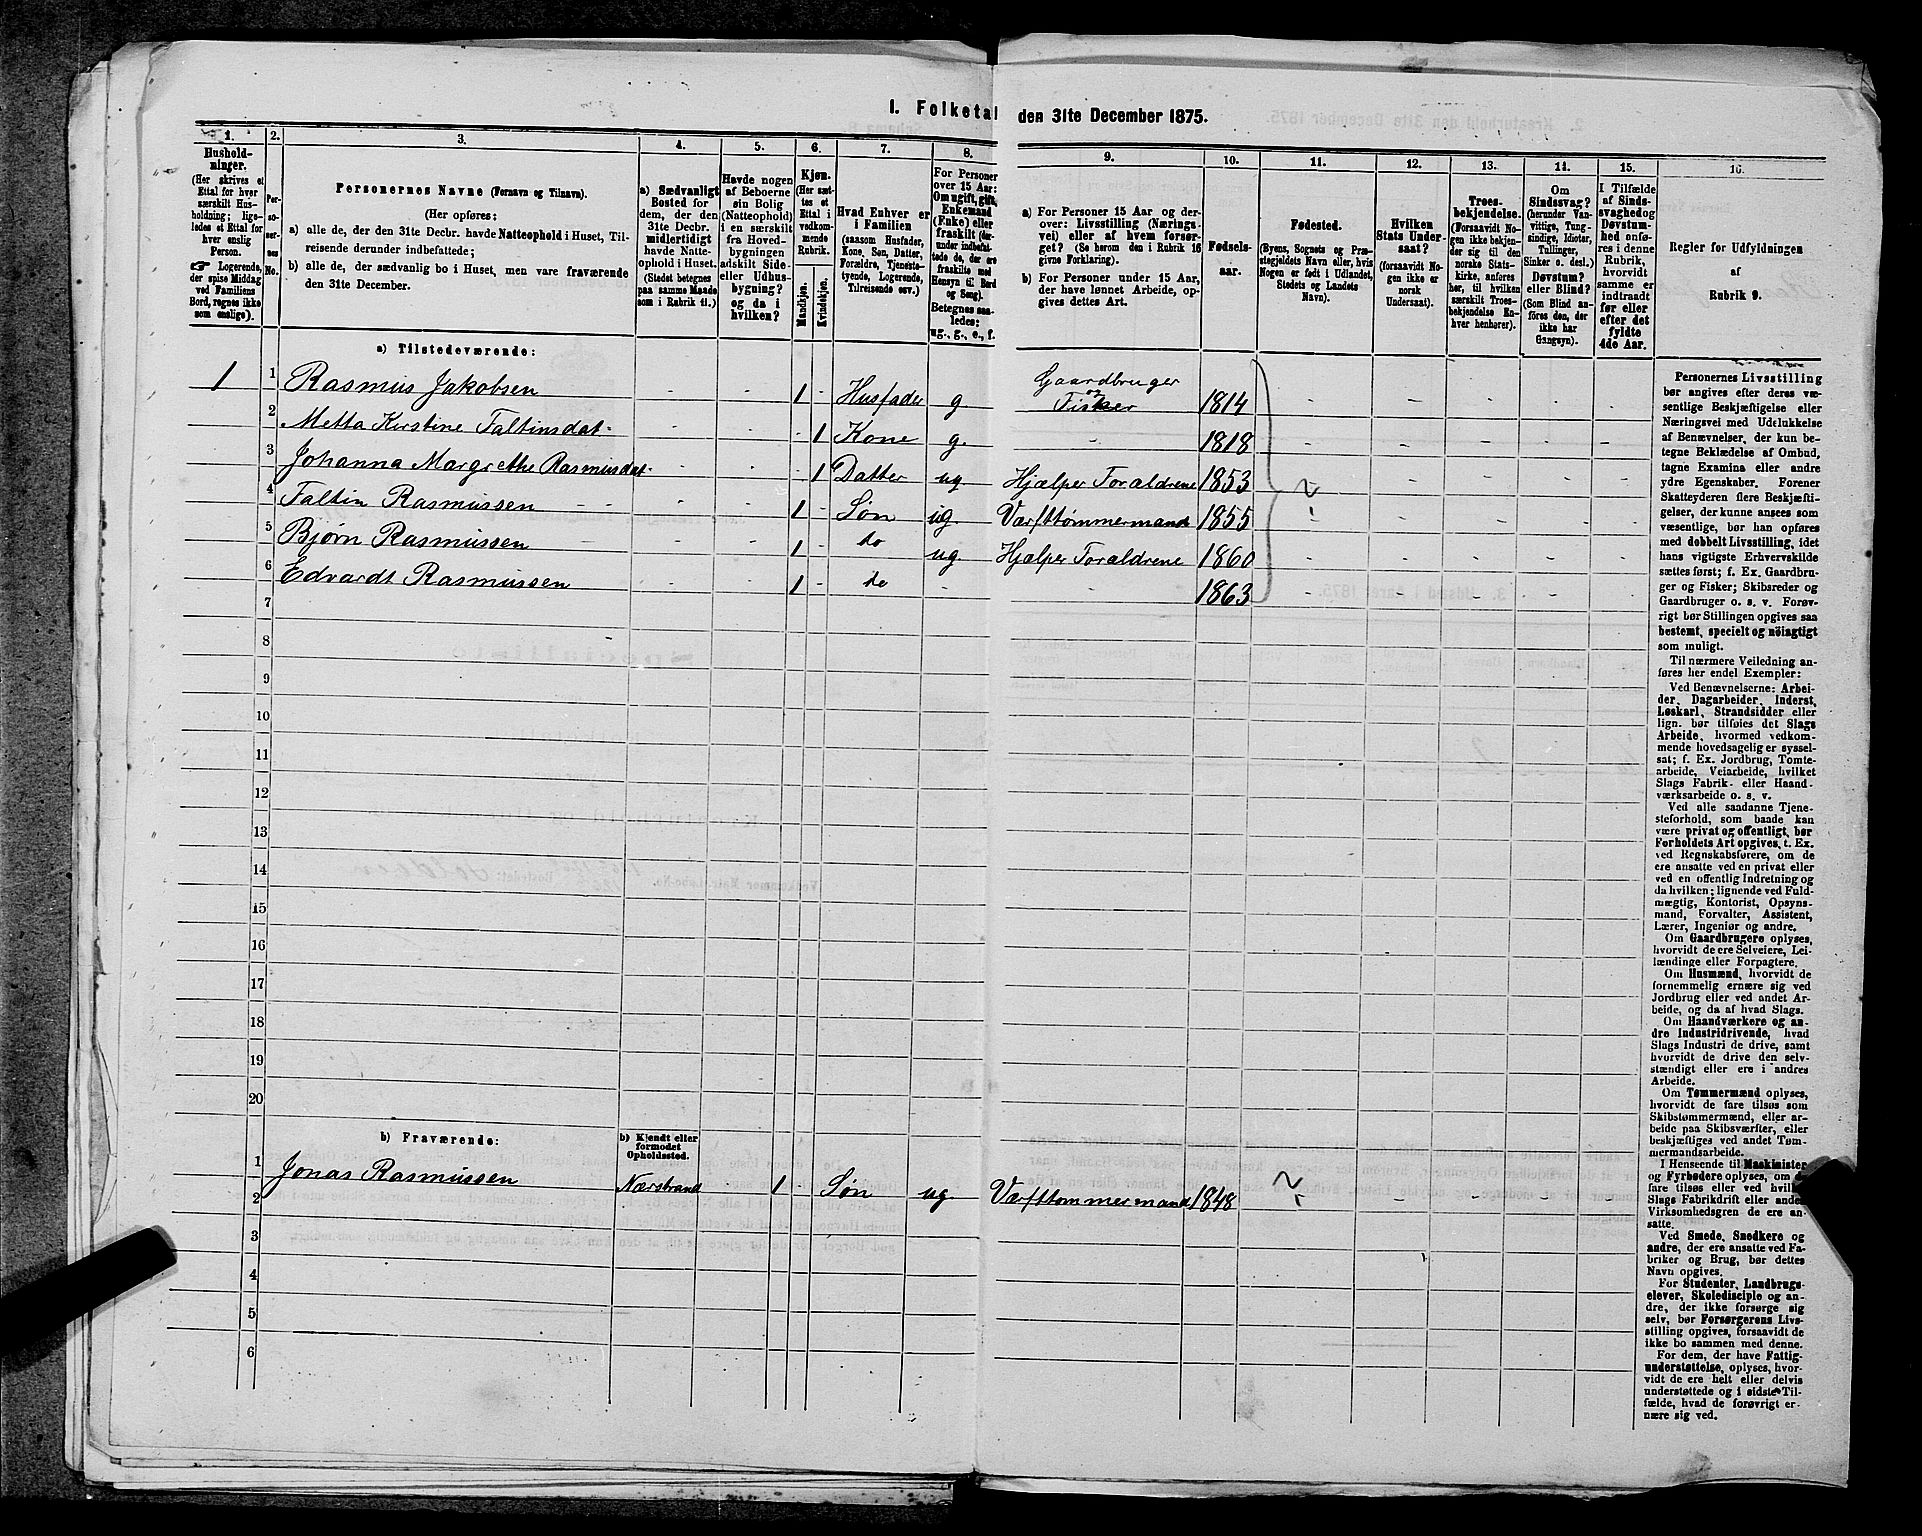 I. Folketal den 31te December 1875.
1.
2.
3.
4.
5.
6.
7.
8.
9.
10.
11.
12.
13.
14.
15.
16.
Hushold-
ninger.
(Her skrives et
Ettal for hver
særskilt Hus-
holdning; lige-
ledes et Ettal for
hver enslig
Person.
☞ Logerende,
der spise Middag
ved Familiens
Bord, regnes ikke
som enslige).
Per-
so-
ner-
nes
No.
Personernes Navne (Fornavn og Tilnavn).
(Her opføres:
a) alle de, der den 31te Decbr. havde Natteophold i Huset, Til-
reisende derunder indbefattede;
b) alle de, der sædvanlig bo i Huset, men vare fraværende
den 31te December.
a) Sædvanligt
Bosted for
dem, der den
31te Decbr.
midlertidigt
havde Natte-
ophold i Huset.
(Stedet betegnes
paa samme Maade
som i Rubrik 11.)
Havde nogen
af Beboerne
sin Bolig
(Natteophold)
i en særskilt
fra Hoved-
bygningen
adskilt Side-
eller Udhus-
bygning?
og da i
hvilken?
Kjøn.
(Her sæt-
tes et
Ettal i
vedkom-
mende
Rubrik.
Mandkjøn.
Kvindekjøn.
Hvad Enhver er
i Familien
(saasom Husfader,
Kone, Søn, Datter,
Forældre, Tjeneste-
tyende, Logerende,
Tilreisende osv.)
For Personer
over 15 Aar:
Om ugift, gift,
Enkemand
(Enke) eller
fraskilt
Betegnes saa-
ledes:
ug., g., e., f.
a) For Personer 15 Aar og der-
over: Livsstilling (Nærings-
vei) eller af hvem forsør-
get? (Se herom den i Rubrik 16
givne Forklaring).
b) For Personer under 15 Aar,
der have lønnet Arbeide, op-
gives dettes Art.
Fødsels-
aar.
Fødested.
(Byens, Sognets og Præ-
stegjeldets Navn eller, hvis
Nogen er født i Udlandet,
Stedets og Landets
Navn).
Hvilken
Stats Under-
saat?
(forsaavidt No-
gen ikke er
norsk
Undersaat).
Troes-
bekjendelse.
(Forsaavidt No-
gen ikke bekjen-
der sig til den
norske Stats-
kirke, anføres
her, til hvilken
særskilt Troes-
bekjendelse En-
hver henhører).
Om
Sindssvag?
(herunder Van-
vittige, Tung-
sindige, Idioter,
Tullinger,
Sinker o. desl.)
Døvstum?
eller Blind?
(Som Blind an-
føres den, der
ikke har
Gangsyn).
I Tilfælde
af Sinds-
svaghed og
Døvstum-
hed onfø-
res i denne
Rubrik,
hvorvidt
samme er
indtraadt
før eller
efter det
fyldte
4de Aar.
Regler for Udfyldningen
af
Rubrik 9.
a) Tilstedeværende:
1 1 Rasmus Jakobsen - - 1 - Husfader g Gaardbruger og Fisker 1814
2 Metta Kirstine Faltinsdat. - - 1 Kone g. - 1818
3 Johanna Margrethe Rasmusdat. - - 1 Datter ug Hjælper Foraldrene 1853
4 Faltin Rasmussen - - 1 - Søn ug. Værfttømmermand 1855
5 Bjørn Rasmussen - - 1 - do ug Hjælper Foraldrene 1860
6 Edvardt Rasmussen - - 1 - do - 1863
7
8
9
10
11
12
13
14
15
16
17
18
19
20
b) Fraværende:
b) Kjendt eller
formodet
Opholdssted.
1 Jonas Rasmussen Nærstrand 1 Søn ug Værfttømmermand 1848
2
3
4
5
6
Personernes Livsstilling
bør angives efter deres væ-
sentlige Beskjæftigelse eller
Næringsvei med Udelukkelse
af Benævnelser, der kun be-
tegne Beklædelse af Ombud,
tagne Examina eller andre
ydre Egenskaber. Forener
Skatteyderen flere Beskjæfti-
gelser, der kunne ansees som
væsentlige, bør han opføres
med dobbelt Livsstilling, idet
hans vigtigste Erhvervskilde
sættes først; f. Ex. Gaardbru-
ger og Fisker; Skibsreder og
Gaardbruger o. s. v. Forøv-
rigt bør Stillingen opgives saa
bestemt, specielt og nöiagtigt
som muligt.
Til nærmere Veiledning an-
føres her endel Exempler:
Ved Benævnelserne: Arbei-
der, Dagarbeider, Inderst,
Løskarl, Strandsidder eller
lign. bør tilføies det Slags
Arbeide, hvormed vedkom-
mende hovedsagelig er syssel-
sat; f. Ex. Jordbrug, Tomte-
arbeide, Veiarbeide, hvilket
Slags Fabrik- eller Haand-
værksarbeide o. s. v.
Ved alle saadanne Tjene-
steforhold, som baade kan
være privat og offentligt, bør
Forholdets Art opgives, t. Ex.
ved Regnskabsførere, om de
ere ansatte ved en privat eller
ved en offentlig Indretning og
da hvilken; lignende ved Fuld-
mægtig, Kontorist, Opsyns-
mand, Forvalter, Assistent,
Lærer, Ingeniør og andre.
Om Gaardbrugere oplyses,
hvorvidt de ere Selveiere, Lei-
lændinge eller Forpagtere.
Om Husmænd, hvorvidt de
fornemmelig ernære sig ved
Jordbrug eller ved andet Ar-
beide, og da af hvad Slags.
Om Haandværkere og an-
dre Industridrivende, hvad
Slags Industri de drive, samt
hvorvidt de drive den selv-
stændigt eller ere i andres
Arbeide.
Om Tømmermænd oplyses,
hvorvidt de fare tilsøs som
Skibstømmermænd, eller ar-
beide paa Skibsværfter, eller
beskjæftiges ved andet Tøm-
mermandsarbeide.
I Henseende til Maskinister
og Fyrbødere oplyses, om de
fare tilsøs eller ved hvilket
Slags Fabrikdrift eller anden
Virksomhedsgren de ere an-
satte.
Ved Smede, Snedkere og
andre, der ere ansatte ved Fa-
briker og Brug, bør dettes
Navn opgives.
For Studenter, Landbrugs-
elever, Skoledisciple og an-
dre, der ikke forsørge sig
selv, bør Forsørgerens Livs-
stilling opgives, forsaavidt de
ikke bo sammen med denne.
For dem, der have Fattig-
understøttelse, oplyses, hvor-
vidt de ere helt eller delvis
understøttede og i sidste Til-
fælde, hvad de forøvrigt er-
nære sig ved.